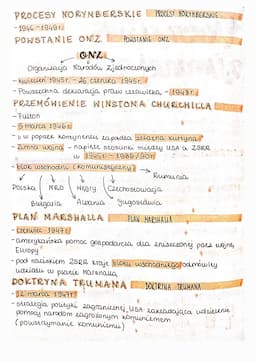 PROCESY NORYMBERSKIE PROCESY NORYMBERSKIE
- 1946 - 1949 r.
POWSTANIE ONZ POWSTANIE ONZ
ONZ
Organizacja Narodów Zjednoczonych
- kwiecień 1945 r. - 26 czerwca 1945 r.
- Powszechna deklaracja praw człowieka, - 1948 r.
PRZEMÓWIENIE WINSTONA CHURCHILLA
- Fulton
- 5 marca 1946 r.
- „w poprzek kontynentu zapadła żelazna kurtyna"
- Zimna wojna - napięte stosunki między USA a ZSRR
w 1945 r. - 1989/90 r.
- blok wschodni (komunistyczny)
Rumunia
Polska NRD Węgry Czechosłowacja
Bułgaria Albania Jugosławia
PLAN MARSHALLA PLAN MARSHALLA
- czerwiec 1947 r.
- amerykańska pomoc gospodarcza dla zniszczonej przez wojnę
Europy
- pod naciskiem ZSRR kraje bloku wschodniego odmówiły
udziału w planie Marshalla
DOKTRYNA TRUMANA DOKTRYNA TRUMANA
- 12 marca 1947 r.
- strategia polityki zagranicznej USA zakładająca udzielenie
pomocy narodom zagrożonym komunizmem
(powstrzymanie komunizmu)